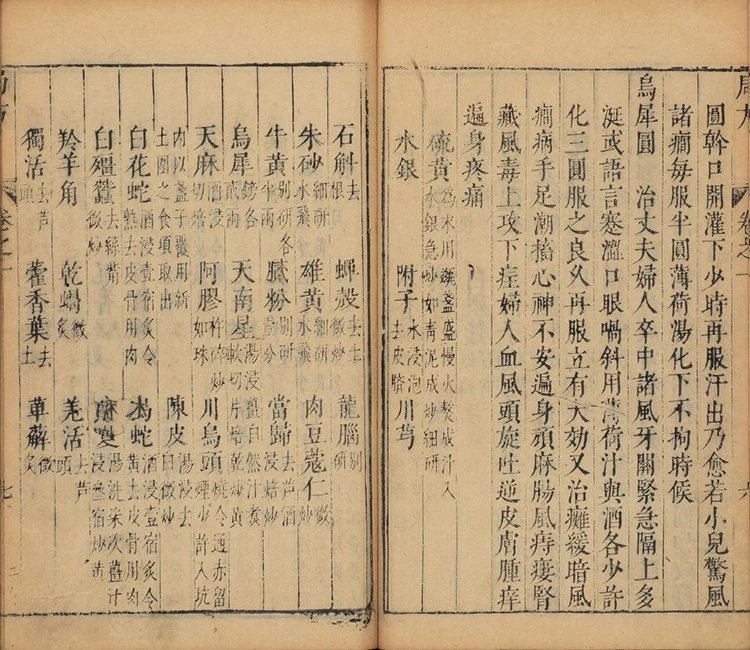 圓幹口開灌下少時再服汗出乃愈若小兒驚風
諸癎每服半圓薄荷湯化下不拘時候
烏犀圓 治丈夫婦人卒中諸風牙關緊急隔上多
涎或語言蹇澀口眼喎斜用薄荷汁與酒各少許
化三圓服之良久再服立有大効又治癱緩暗風
癎病手足潮搐心神不安遍身頑麻腸風痔瘻腎
藏風毒上攻下疰婦人血風頭旋吐逆皮膚腫痒
遍身疼痛
硫黄為末用甆盞盛慢火熬成汁入水銀急炒如青泥成砂細研
水銀 附子水浸泡去皮臍 川芎
石斛去根 蟬殼微炒 龍腦別研
朱砂細研水飛 雄黄細研水飛 肉豆蔻仁微炒
牛黄別研各半兩 膩粉別研壹分 當歸去蘆酒浸焙炒
烏犀鎊各貳兩 天南星湯浸軟切片焙乾炒黄薑自然汁煮
天麻酒浸切焙 阿膠杵碎炒如珠 川烏頭燒令通赤留煙少許入坑
内以盞子覆用新土圍之食頃取出 陳皮湯浸去白微炒
白花蛇酒浸壹宿炙令熟去皮骨用肉 烏蛇酒浸壹宿炙令黄去皮骨用肉
白殭蠶去絲觜微炒 湯洗柒次薑汁浸叁宿炒黄
羚羊角 乾蝎微炙 羌活去蘆頭
獨活去蘆頭 藿香葉去土 萆薢微炙